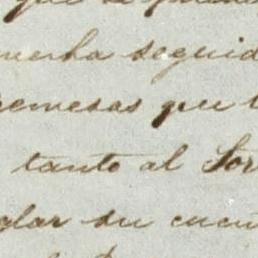 que se
seguid
remesas que
tanto al Sor
glar su cuen